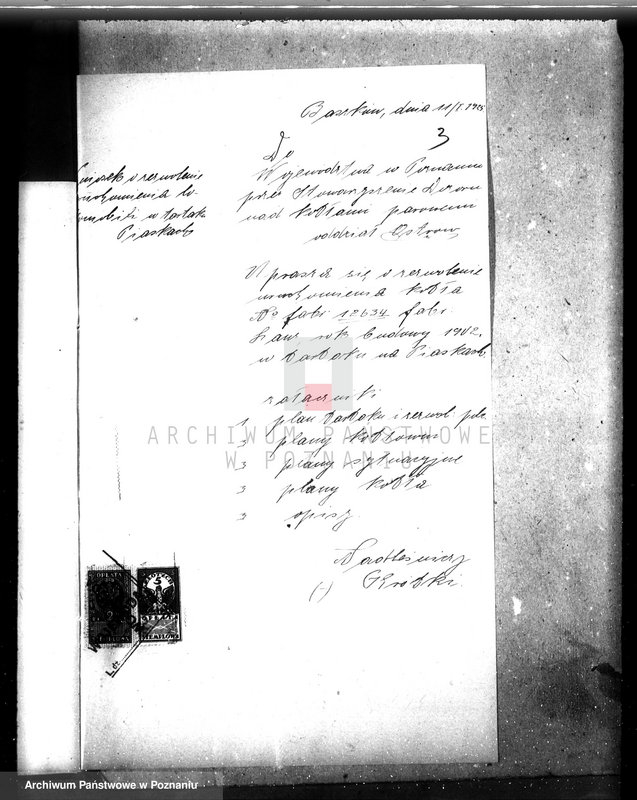 Baszków, dnia 11/I. 19
3
Do
Województwa w Poznaniu
przez Stowarzyszenie Dozoru
nad kotłami parowemi
oddział Ostrów
Wniosek o zezwolenie
uruchomienia lo-
komobili w tartaku
Piaskach
Uprasza się o zezwolenie
uruchomienia kotła
No fabr 12634 fabr.
Lanz rok budowy 1902.
w tartaku na Piaskach
załączniki
1 plan tartaku i zezwol.
3 plany kotłowni
3 plany sytuacyjne
3 plany kotła
3 opisy.
Nadleśniczy
(-) Krotki
OPŁATA
STEMPLOWA
ARCHIWUM PAŃSTWOWE
W POZNANIU
Archiwum Państwowe w Poznaniu